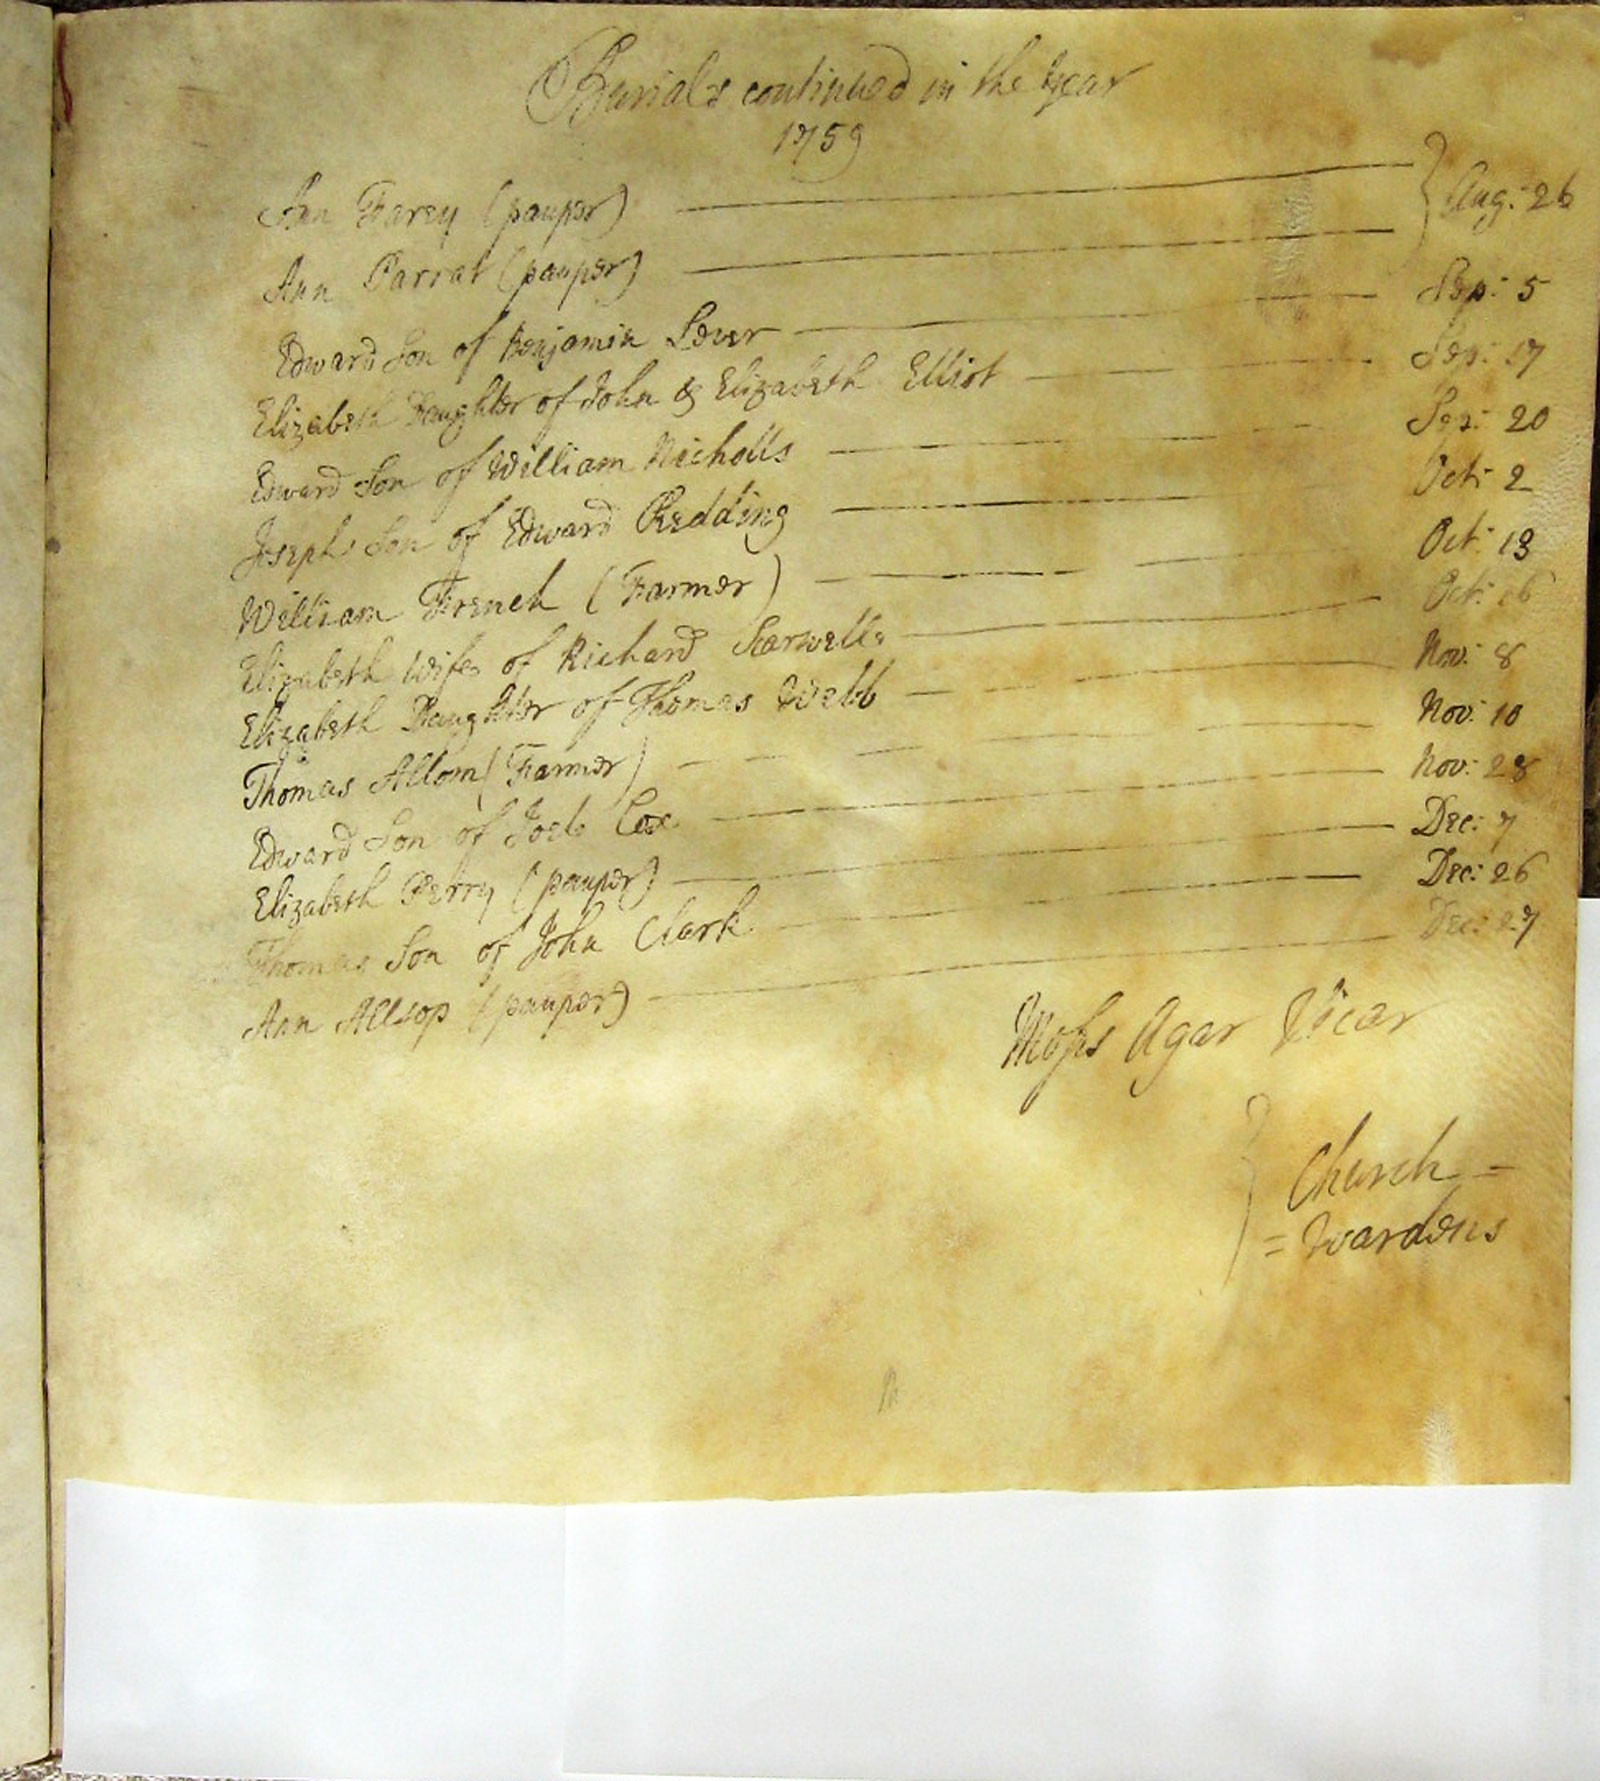 Burials continued in the Year
1759
Ann Farey (pauper) Aug: 26
Ann Parrat (pauper)
Edward Son of Benjamin Lever Sep: 5
Elizabeth Daughter of John & Elizabeth Elliot Sep: 17
Edward Son of William Nicholls Sep: 20
Joseph Son of Edward Redding Oct: 2
William French (Farmer) Oct: 13
Elizabeth Wife of Richard Oct: 16
Elizabeth Daughter of Thomas Webb Nov: 8
Thomas Allom (Farmer) Nov: 10
Edward Son of Joel Cox Nov: 28
Elizabeth Perry (pauper) Dec: 7
Thomas Son of John Clark Dec: 26
Ann Allsop (pauper) Dec: 27
Moses Agar Vicar
Church =
= wardens